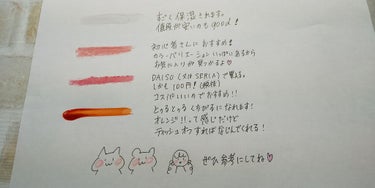 すごく保湿されます。
値段が安いのもgood!
初心者さんにおすすめ!
カラーバリエーションいっぱいあるから
お気に入りが見つかるよ♡
DAISO(又はSERIA)で買える。
しかも100円!(税抜)
コスパいいのでおすすめ!!
とぅるとぅるくちびるになれます!
オレンジ!!って感じだけど
ティッシュオフすればなじんでくれる!
ぜひ参考にしてね♡